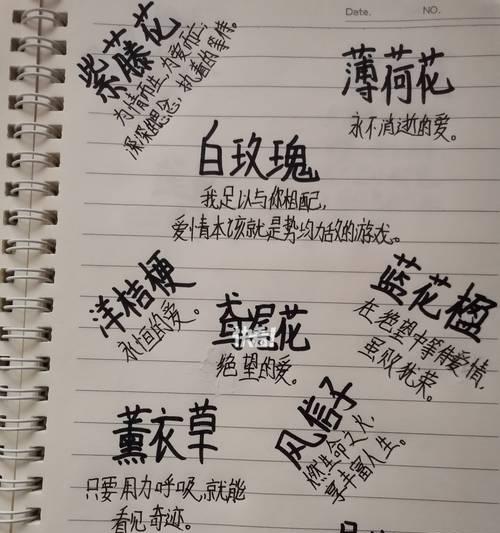 Date.
NO.
紫藤花
为情而生,为爱而亡;
执着的等待。
深深的思念,
薄荷花
永不消逝的爱。
白玫瑰
我足以与你相配,
爱情本该就是势均力敌的游戏。
洋桔梗
永恒的爱。
鸢尾花
绝望的爱。
蓝花楹
在绝望中等待爱情,
虽败犹荣。
薰衣草
只要用力呼吸,就能
看见奇迹。
风信子
燃生命之火,
享丰富人生。